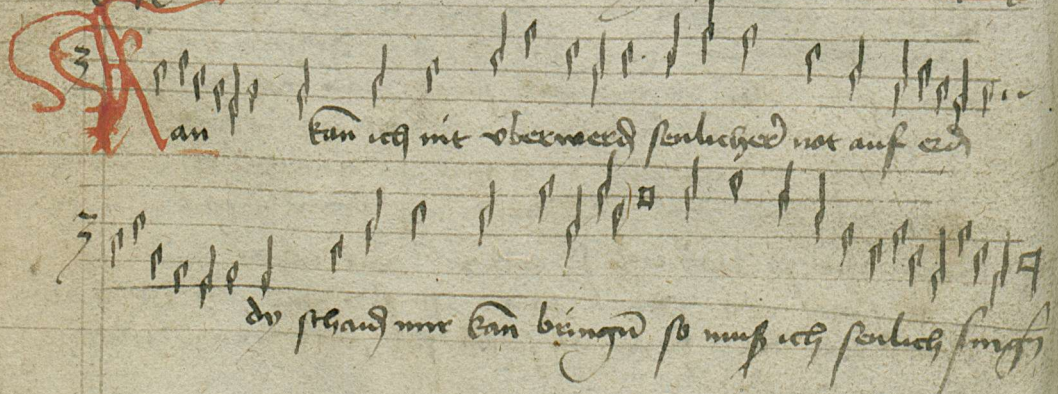 kan ich nit vberwerdn senlicher not auf erd
dy schaid mir kan bringn so muß ich senlich singn